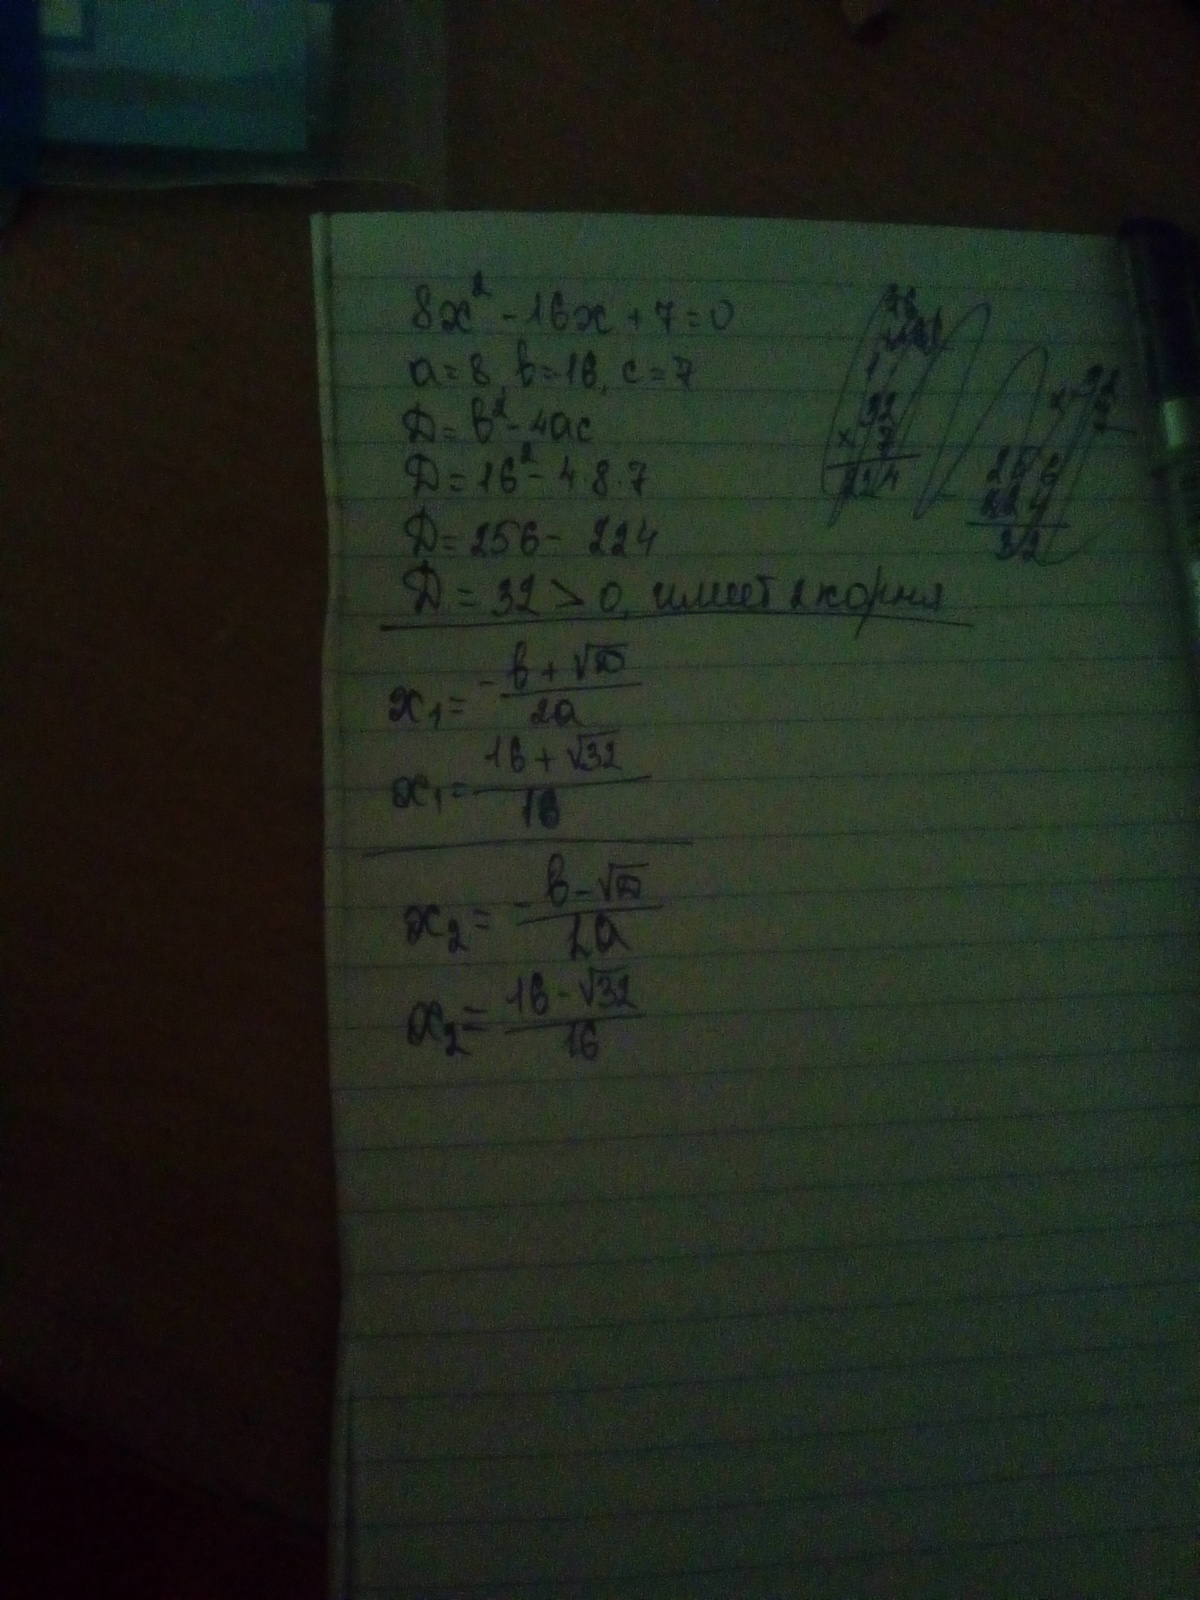 8x² - 16x + 7 = 0
a = 8, b = -16, c = 7
D = b² - 4ac
D = 16² - 4·8·7
D = 256 - 224
D = 32 > 0, имеет 2 корня
x₁ = -b + √D / 2a
x₁ = 16 + √32 / 16
x₂ = -b - √D / 2a
x₂ = 16 - √32 / 16
16
1
32
× 7
224
× 32
7
256
224
32